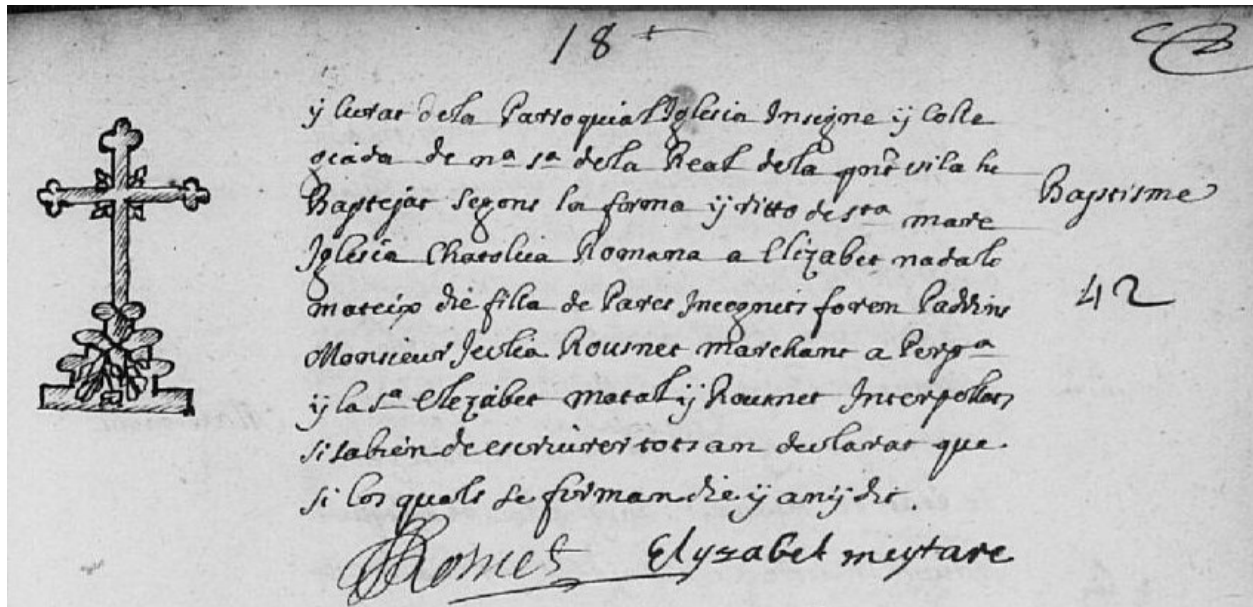 18
y curat de la Parroquial Iglesia Insigne y Colle
giada de nª sª de la Real de la pnt vila he
Baptejat segons la forma y ritto de stª mare
Baptisme
Iglesia Chatolica Romana a Elizabet nada lo
mateix die filla de Pares Incognits foren Padrins
42
Monsieur Jeulia Rousnet marchant a Perpª
y la sª Elezabet matal y Rousnet Interpollats
si sabien de escriurer tots an declarat que
si los quals se forman die y any dit.
Elyzabet meytare